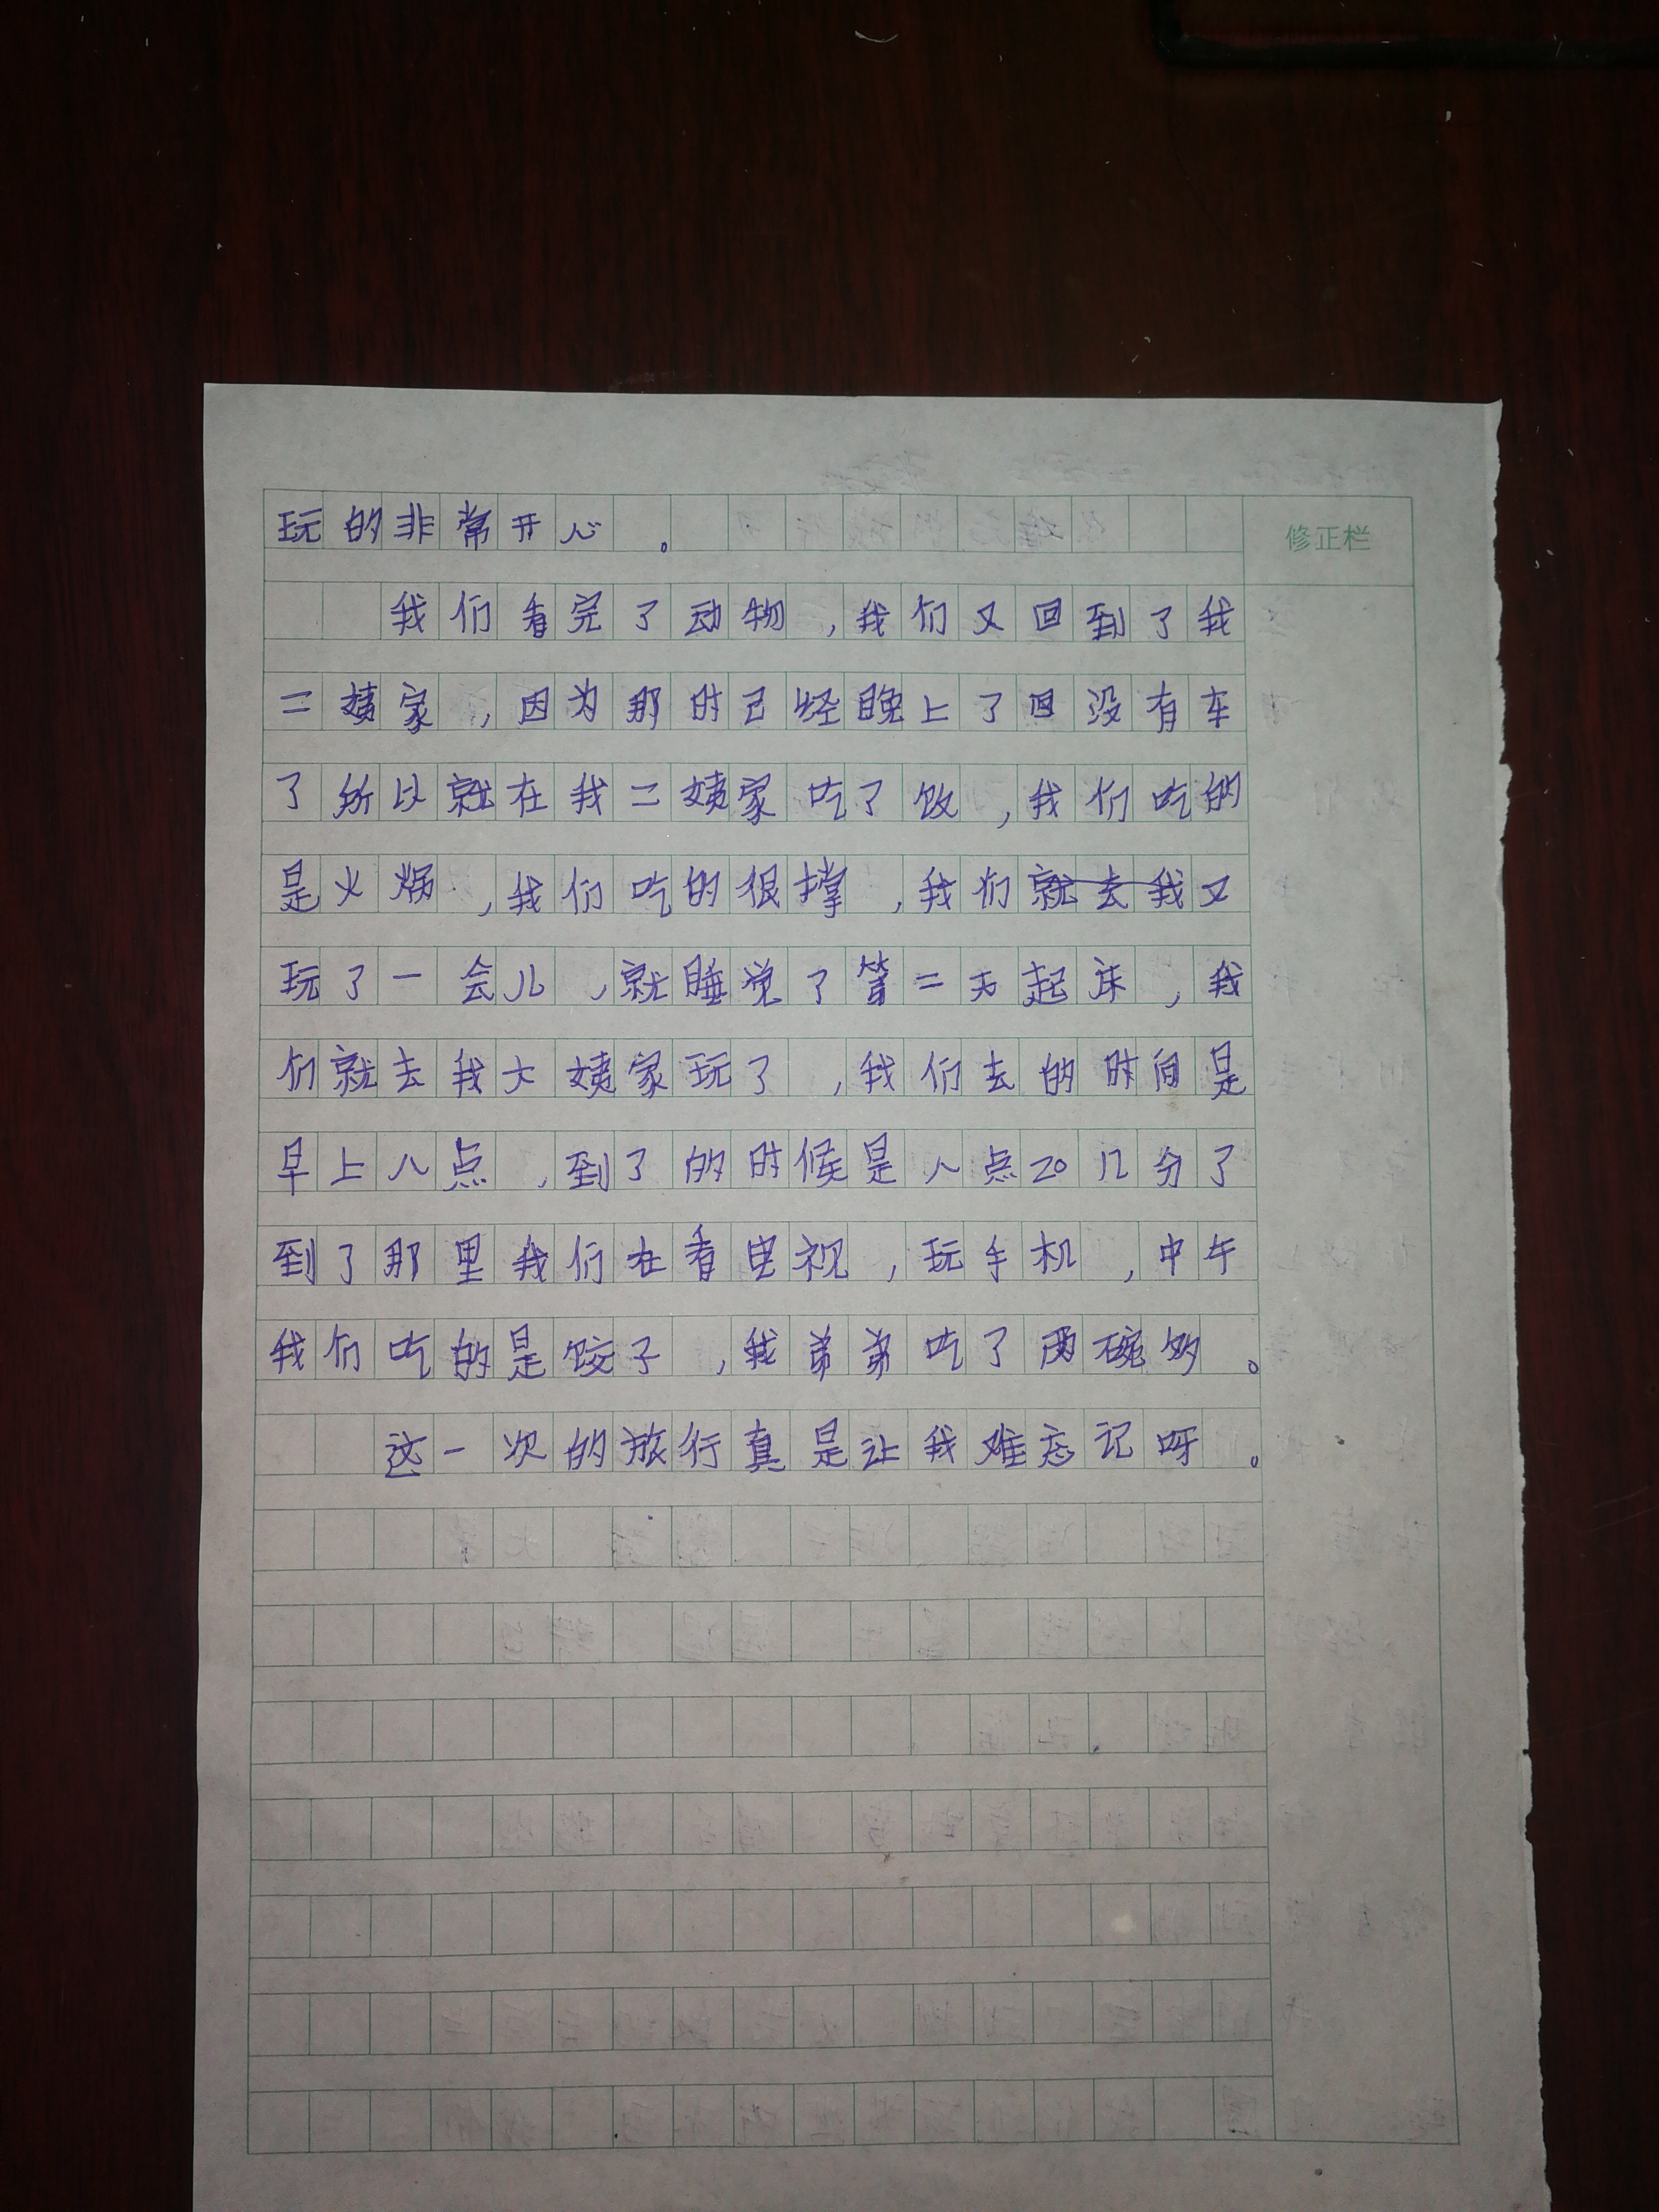 玩的非常开心。
修正栏
我们看完了动物,我们又回到了我
二姨家,因为那时已经晚上了回没有车
了所以就在我二姨家吃了饭,我们吃的
是火锅,我们吃的很撑,我们就去我又
玩了一会儿,就睡觉了第二天起床,我
们就去我大姨家玩了,我们去的时间是
早上八点,到了的时候是八点20几分了
到了那里我们在看电视,玩手机,中午
我们吃的是饺子,我弟弟吃了两碗多。
这一次的旅行真是让我难忘记呀。